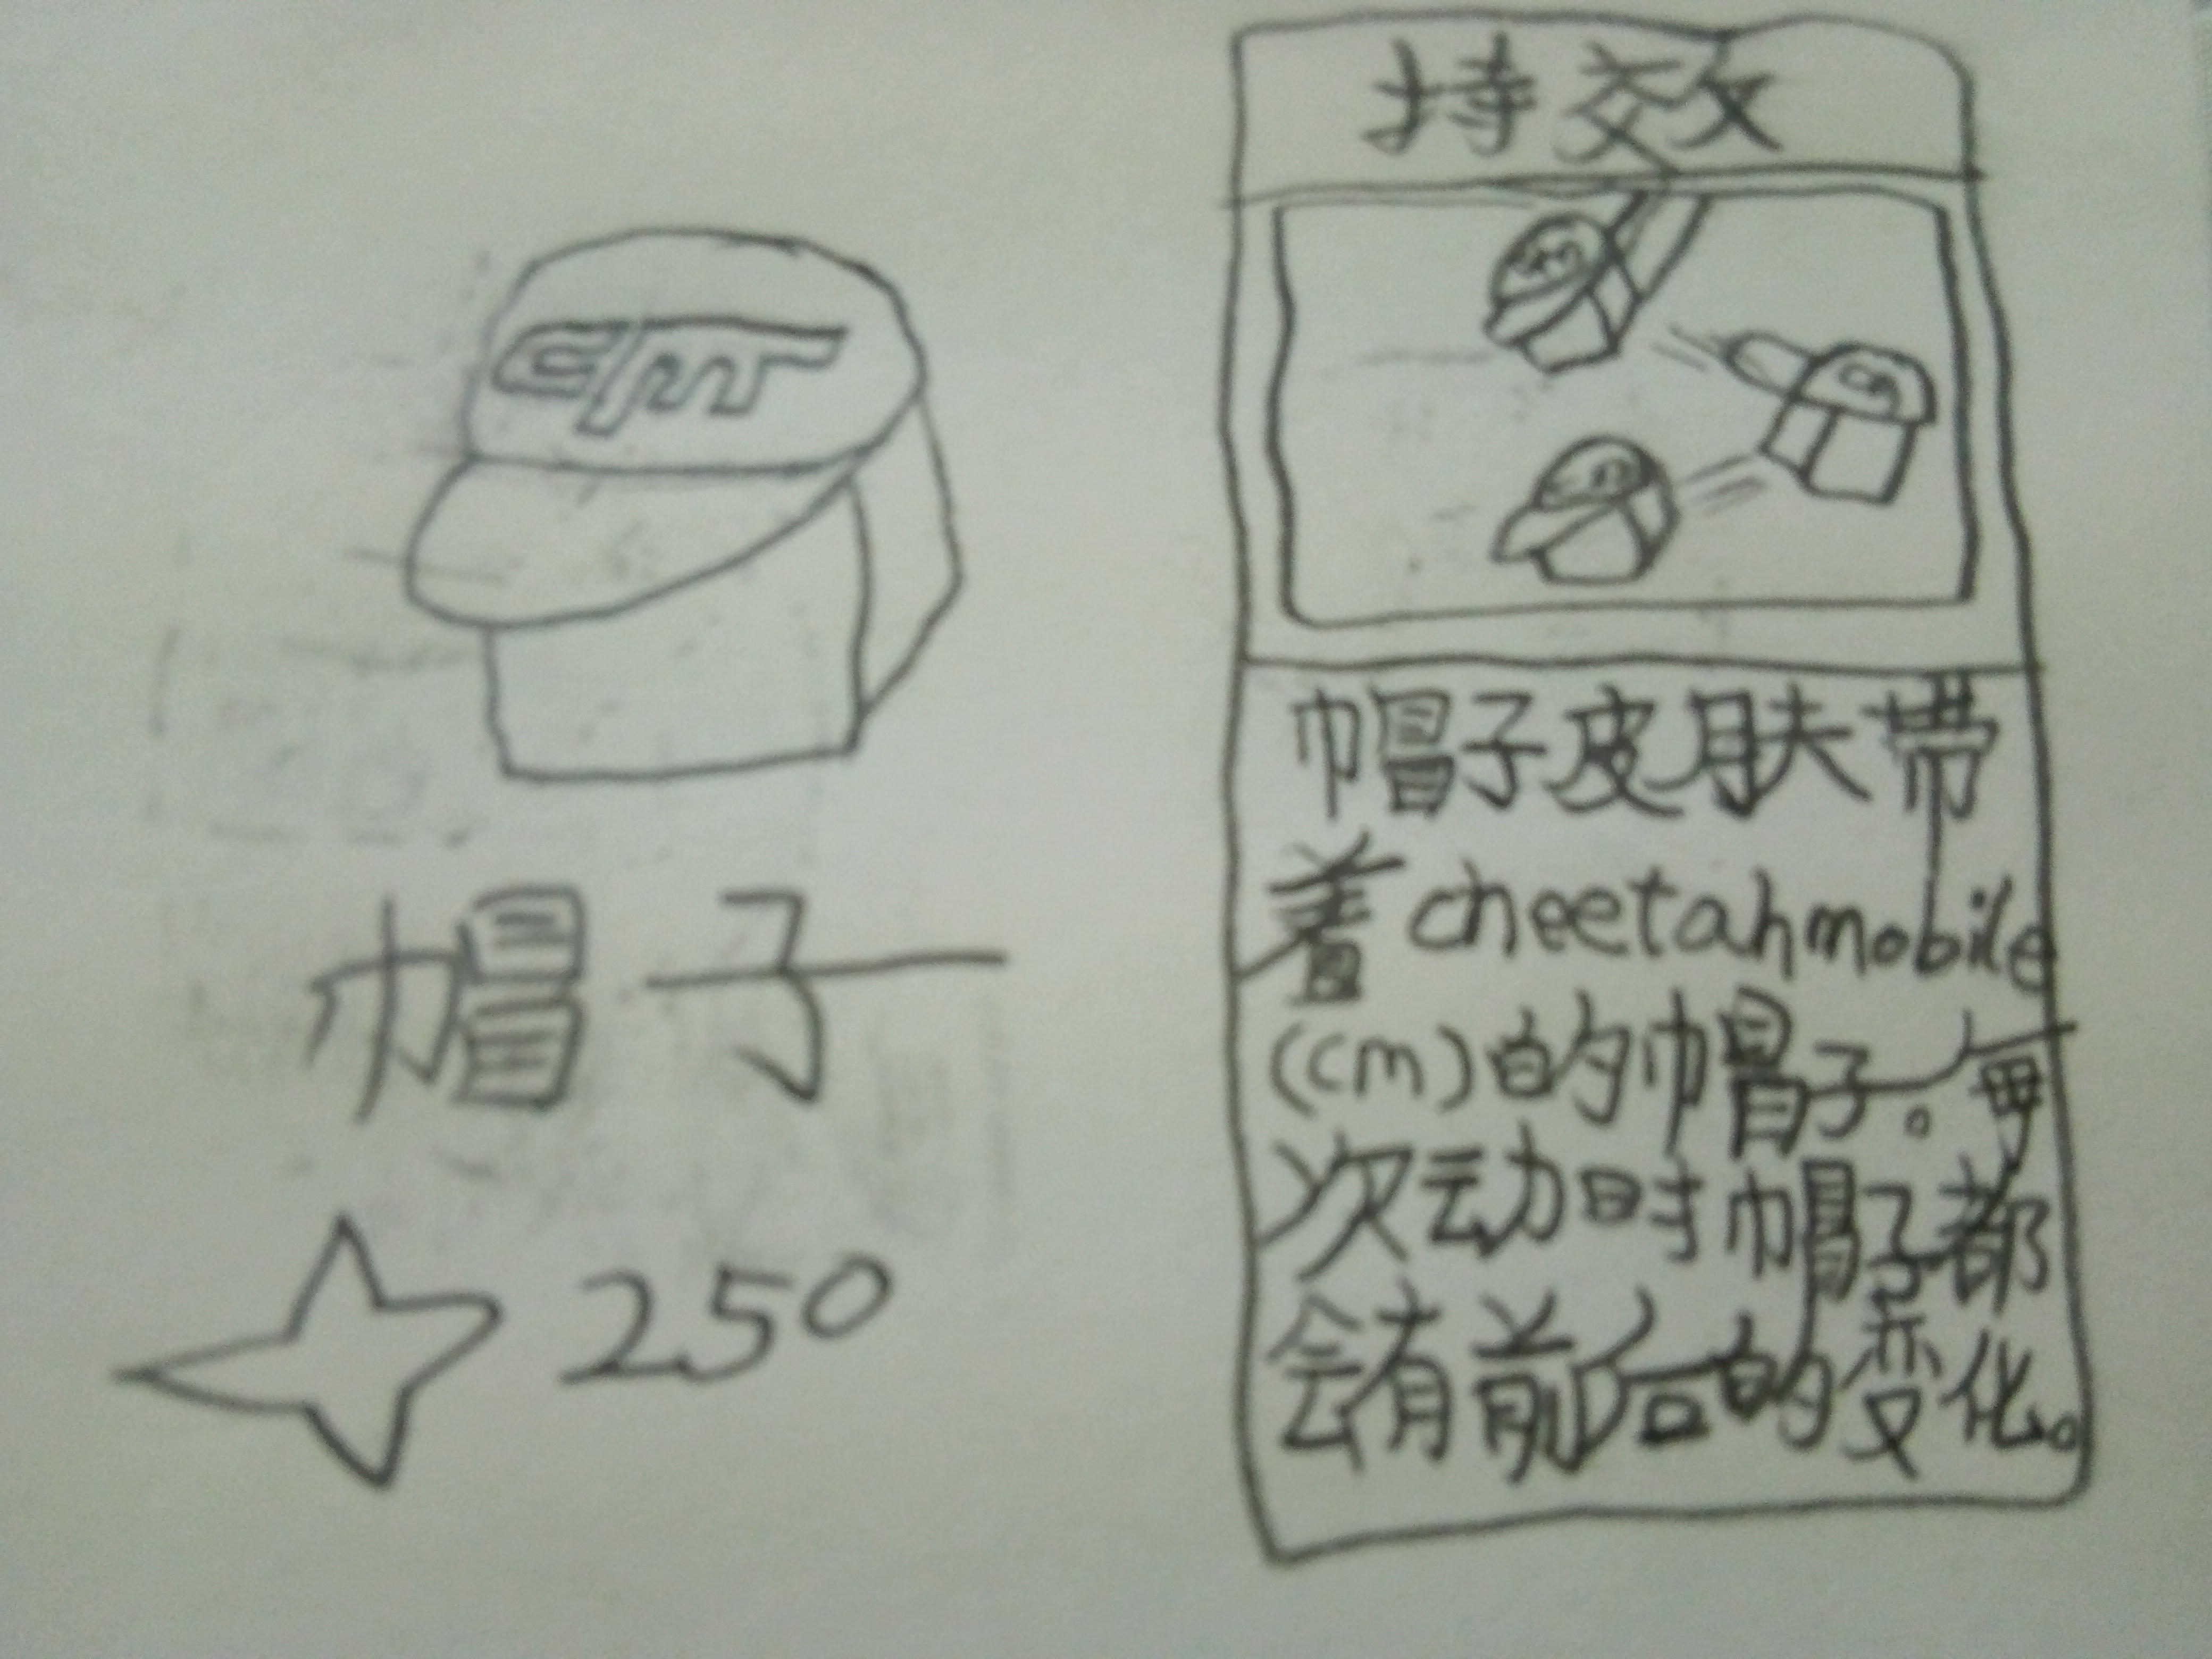 cm
帽子
250
特效
帽子皮肤带
着cheetahmobile
(cm)的帽子。每
次动时帽子都
会有前后的变化。